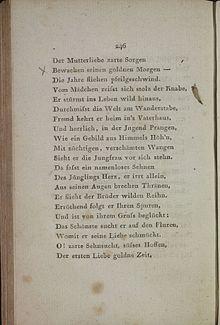 246
Der Mutterliebe zarte Sorgen
Bewachen seinen goldnen Morgen —
Die Jahre fliehen pfeilgeschwind.
Vom Mädchen reifst sich stolz der Knabe,
Er stürmt ins Leben wild hinaus,
Durchmifst die Welt am Wanderstabe,
Fremd kehrt er heim in's Vaterhaus,
Und herrlich, in der Jugend Prangen,
Wie ein Gebild aus Himmels Höh'n,
Mit züchtigen, verschämten Wangen
Sieht er die Jungfrau vor sich stehn.
Da fafst ein namenloses Sehnen
Des Jünglings Herz, er irrt allein,
Aus seinen Augen brechen Thränen,
Er flieht der Brüder wilden Reihn.
Erröthend folgt er ihren Spuren,
Und ist von ihrem Grufs beglückt;
Das Schönste sucht er auf den Fluren,
Womit er seine Liebe schmückt.
O! zarte Sehnsucht, süfses Hoffen,
Der ersten Liebe goldne Zeit,